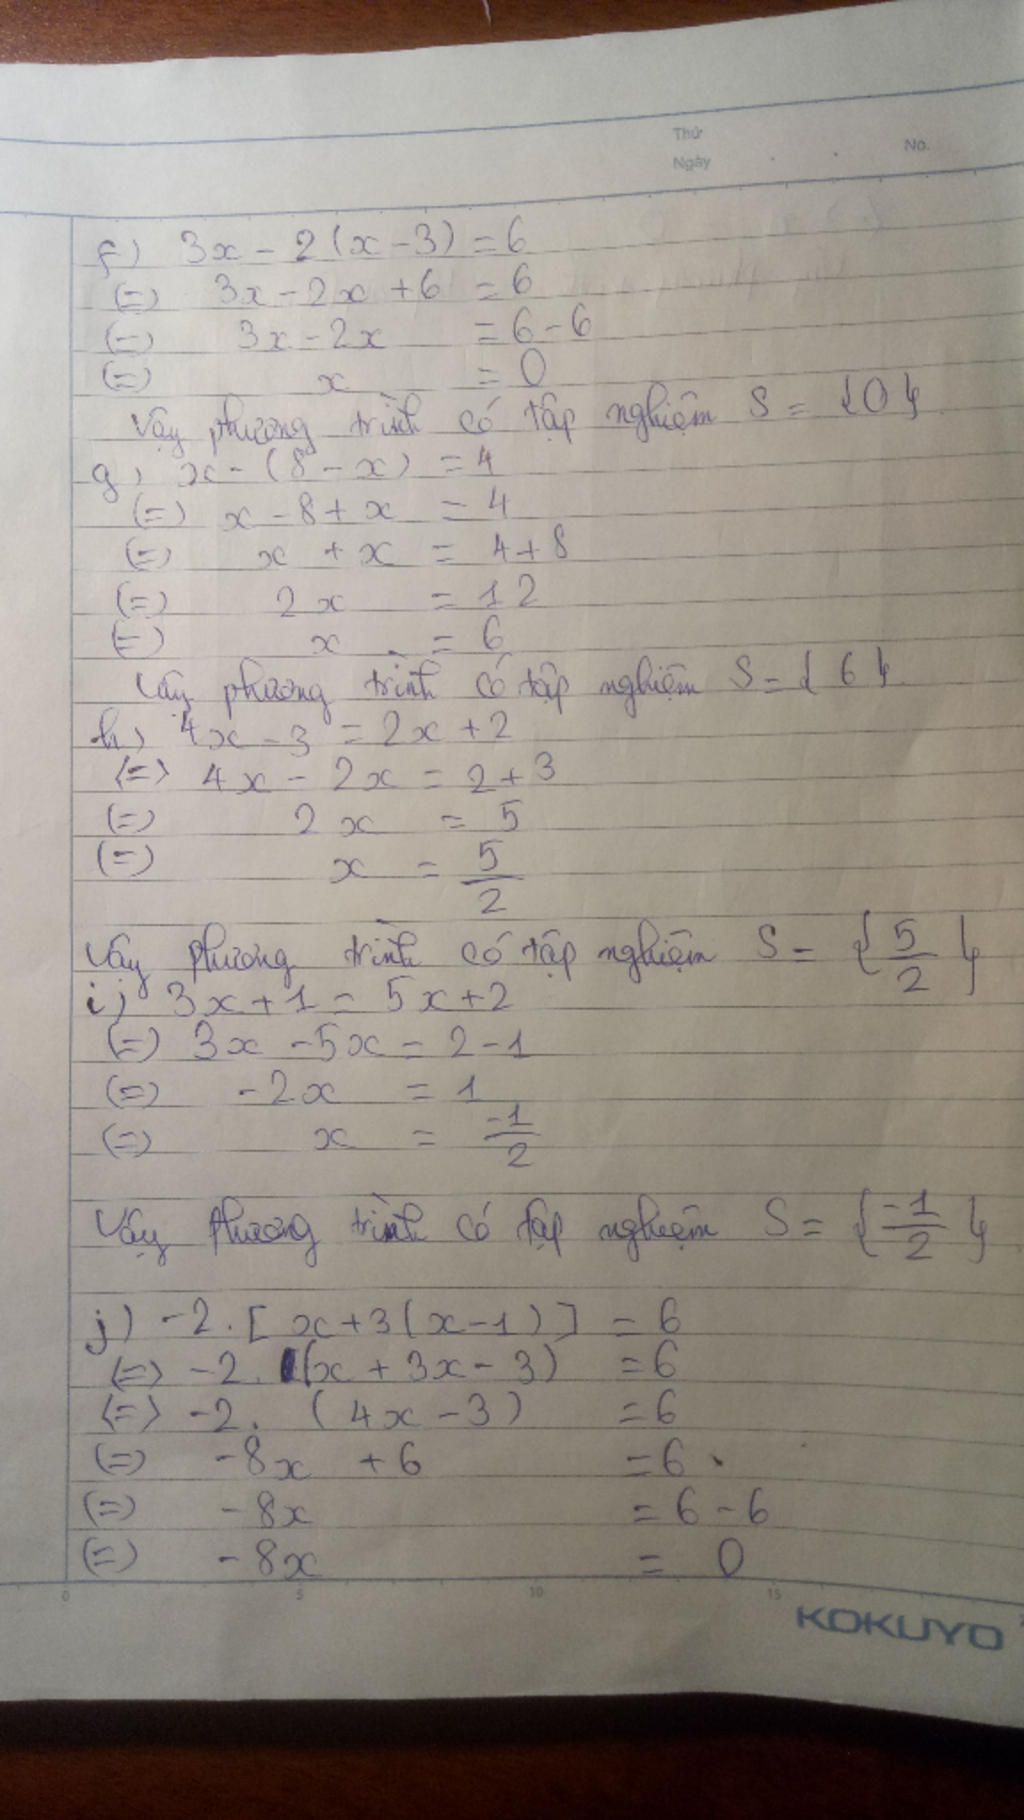 Thứ
Ngày
No.
f) 3x - 2(x - 3) = 6
(=) 3x - 2x + 6 = 6
(=) 3x - 2x = 6 - 6
(=) x = 0
Vậy phương trình có tập nghiệm S = {0}
g) x - (8 - x) = 4
(=) x - 8 + x = 4
(=) x + x = 4 + 8
(=) 2x = 12
(=) x = 6
Vậy phương trình có tập nghiệm S = {6}
h) 4x - 3 = 2x + 2
<=> 4x - 2x = 2 + 3
(=) 2x = 5
(=) x = 5/2
Vậy phương trình có tập nghiệm S = {5/2}
i) 3x + 1 = 5x + 2
(=) 3x - 5x = 2 - 1
(=) -2x = 1
(=) x = -1/2
Vậy phương trình có tập nghiệm S = {-1/2}
j) -2. [x + 3(x - 1)] = 6
(=) -2. (x + 3x - 3) = 6
<=> -2. (4x - 3) = 6
(=) -8x + 6 = 6
(=) -8x = 6 - 6
(=) -8x = 0
0 5 10 15
KOKUYO